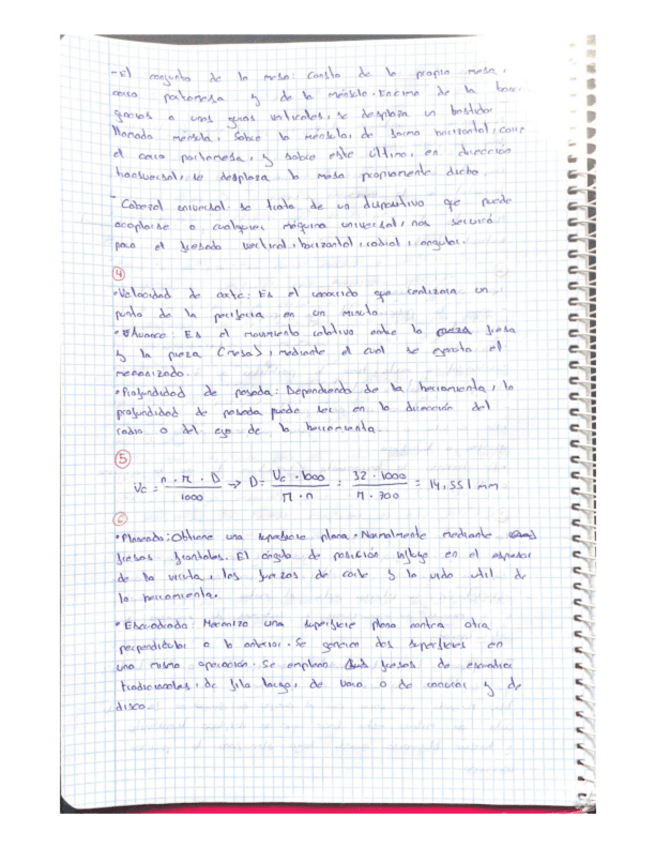 - El conjunto de la mesa: Consta de la propia mesa,
carro portamesa y de la ménsula. Encima de la base,
gracias a unas guías verticales, se desplaza un bastidor
llamado ménsula. Sobre la ménsula, de forma horizontal, corre
el carro portamesa, y sobre este último, en dirección
transversal, se desplaza la mesa propiamente dicha.
- Cabezal universal: se trata de un dispositivo que puede
acoplarse a cualquier máquina universal, nos servirá
para el fresado vertical, horizontal, radial, angular.
4
• Velocidad de corte: Es el recorrido que realizara un
punto de la periferia en un minuto.
• Avance: Es el movimiento relativo entre la fresa
y la pieza (mesa), mediante el cual se ejecuta el
mecanizado.
• Profundidad de pasada: Dependiendo de la herramienta, la
profundidad de pasada puede ser en la dirección del
radio o del eje de la herramienta.
5
Vc = n · π · D / 1000 → D = Vc · 1000 / π · n = 32 · 1000 / π · 700 = 14,551 mm
6
• Planeado: Obtiene una superficie plana. Normalmente mediante
fresas frontales. El ángulo de posición influye en el espesor
de la viruta, los fuerzos de corte y la vida útil de
la herramienta.
• Escuadrado: Mecanizo una superficie plana contra otra
perpendicular a la anterior. Se generan dos superficies en
una misma operación. Se emplean fresas de escuadrar
tradicionales, de filo largo, de vaso o de concar y de
disco.